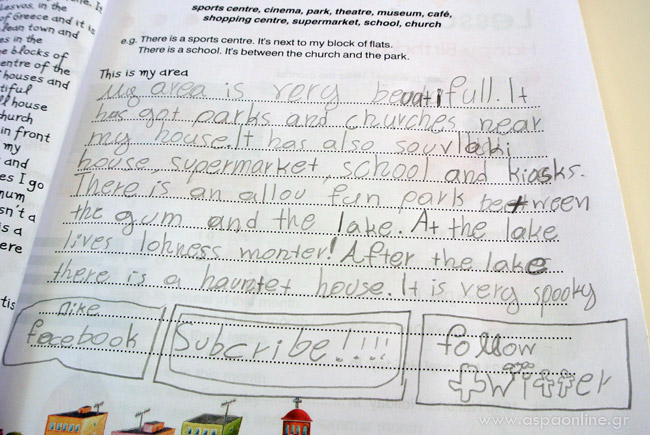 esvos, in the
of Greece and it is
lean town and
es in the
e blocks of
entre of the
houses and
tiful
ll house
hurch
in front
my
and
es I go
num
sn't a
is a
ere
tis
sports centre, cinema, park, theatre, museum, café,
shopping centre, supermarket, school, church
e.g. There is a sports centre. It's next to my block of flats.
There is a school. It's between the church and the park.
This is my area
My area is very beuatifull. It
has got parks and churches near
my house. It has also souvlaki
house, supermarket, school and kiosks.
There is an allou fun park between
the gum and the lake. At the lake
lives lohness monter! After the lake
there is a hauntet house. It is very spooky
like
facebook
Subcribe!!!!
follow
twitter
www.aspaonline.gr